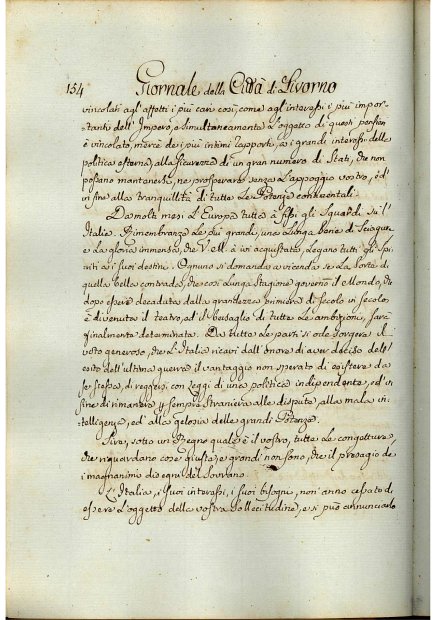 154 Giornale della Città di Livorno
vincolati agl' affetti i più cari così, come agl' interessi i più impor-
tanti dell' Impero, e simultaneamente L'oggetto di questi pensieri
è vincolato, mercè dei più intimi rapporti, ai grandi interessi della
politica esterna, alla sicurezza di un gran numero di Stati, che non
possano mantenersi, ne prosperare senza L'appoggio vostro, ed
in fine alla tranquillità di tutte Le Potenze continentali.
Da molti mesi L'Europa tutta à fissi gli Sguardi su l'
Italia. Rimembranze Le più grandi, una Lunga Serie di Sciagure
e La gloria immensa, che V. M. à ivi acquistata, Legano tutti gli Spi-
riti a i suoi destini. Ognuno si domanda a vicenda se La Sorte di
quella bella contrada, che così Lunga Stagione governò il Mondo, che
dopo essere decaduta dalla grandezza primiera di Secolo in Secolo,
è divenuta il teatro, ed il bersaglio di tutte Le ambizioni, Sarà
finalmente determinata. Da tutte Le parti si ode sorgere il
voto generoso, che L'Italia ricavi dall'onore di aver deciso dell'
esito dell'ultima guerra, il vantaggio non sperato di esistere da
se stessa, di reggersi con Leggi di una politica independente, ed in
fine di rimanere p. sempre straniera alle dispute, alla mala in-
telligenza, ed' alla gelosia delle grandi Potenze.
Sire, sotto un Regno quale è il vostro, tutte Le congetture,
che riguardano cose giuste, e grandi non sono, che il presagio de
i magnanimi disegni del Sovrano.
L'Italia, i suoi interessi, i suoi bisogni, non anno cessato di
essere L'oggetto della vostra sollecitudine, e si può annunciarlo